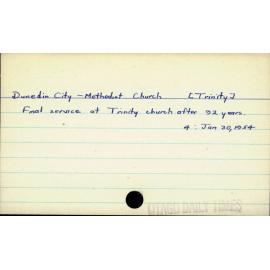 Dunedin City - Methodist Church [Trinity]
Final service at Trinity church after 92 years.
4: Jan 30, 1954
OTAGO DAILY TIMES